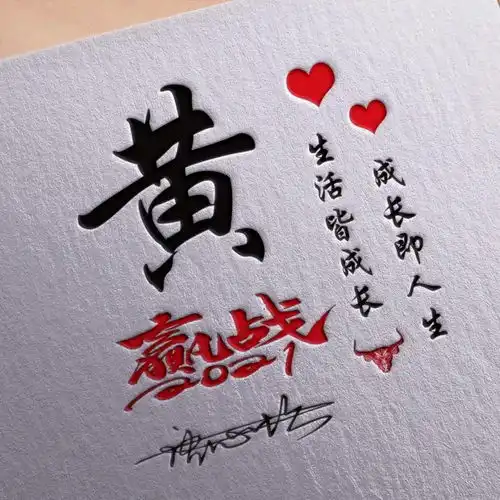 黄
成长即人生
生活皆成长
赢战
2021